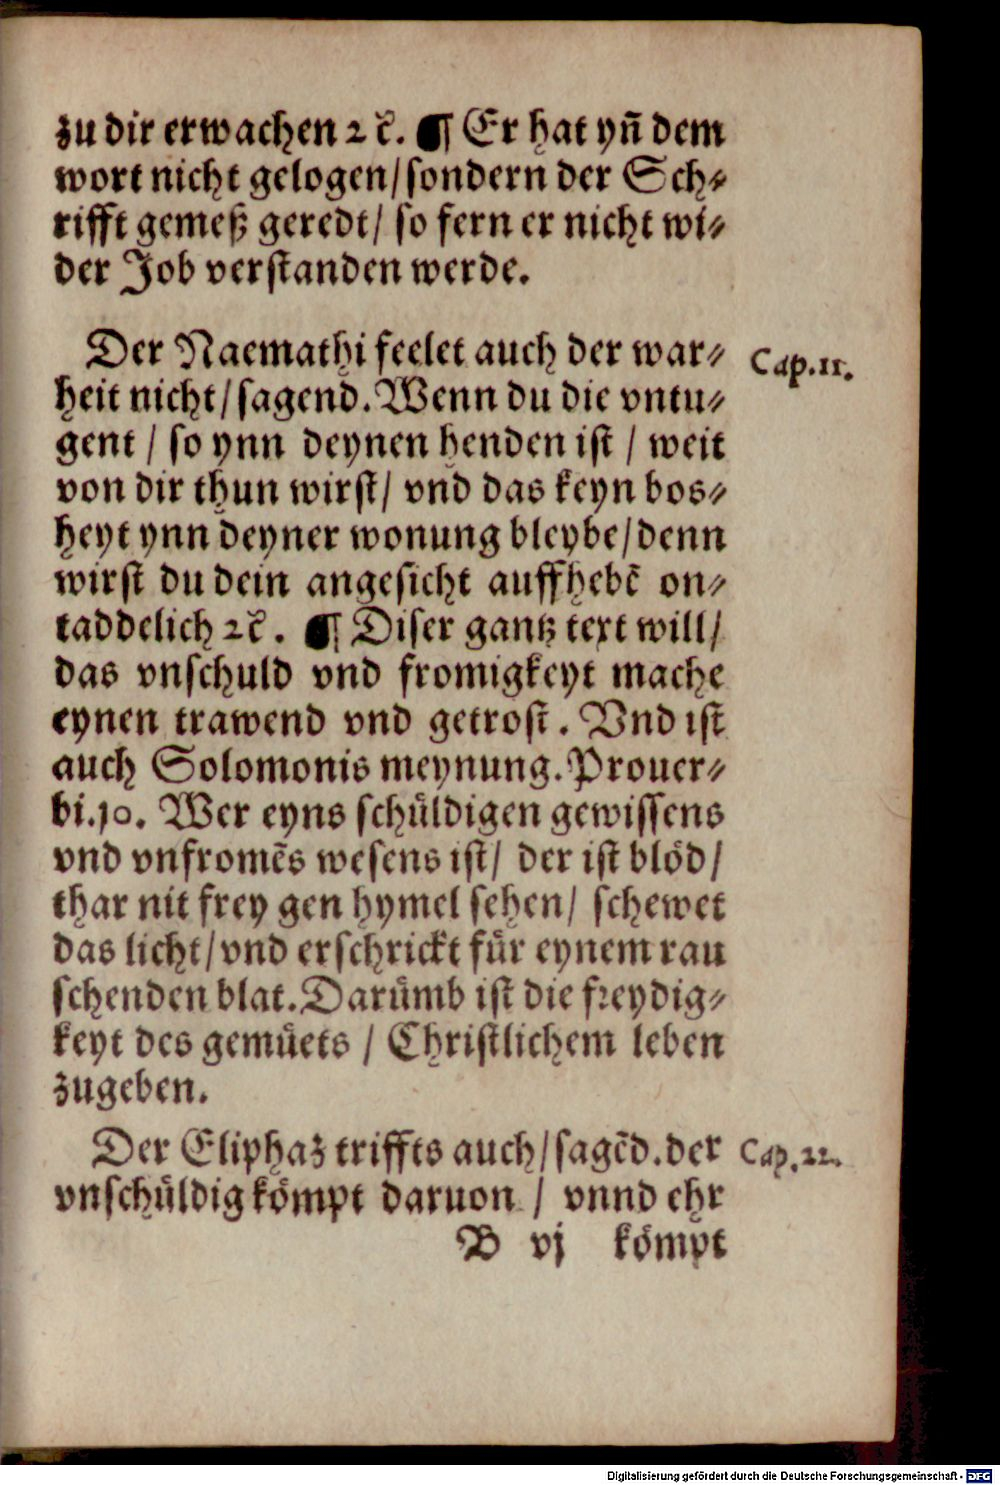 zu dir erwachen ꝛc̃. ¶ Er hat yñ dem
wort nicht gelogen/sondern der Sch⸗
rifft gemeß geredt/ so fern er nicht wi⸗
der Job verstanden werde.
Der Naemathi feelet auch der war⸗
Cap.11.
heit nicht/sagend.Wenn du die vntu⸗
gent / so ynn deynen henden ist / weit
von dir thun wirst/ vnd das keyn bos⸗
heyt ynn deyner wonung bleybe/denn
wirst du dein angesicht auffhebẽ on⸗
taddelich ꝛc̃. ¶ Diser gantz text will/
das vnschuld vnd fromigkeyt mache
eynen trawend vnd getrost. Vnd ist
auch Solomonis meynung.Prouer⸗
bi.10. Wer eyns schuͤldigen gewissens
vnd vnfromẽs wesens ist/ der ist bloͤd/
thar nit frey gen hymel sehen/ schewet
das licht/vnd erschrickt fuͤr eynem rau
schenden blat.Daruͤmb ist die freydig⸗
keyt des gemuͤets / Christlichem leben
zugeben.
Der Eliphaz triffts auch/sagẽd.der
Cap.22.
vnschuͤldig koͤmpt daruon / vnnd ehr
B vj koͤmpt
Digitalisierung gefördert durch die Deutsche Forschungsgemeinschaft - DFG